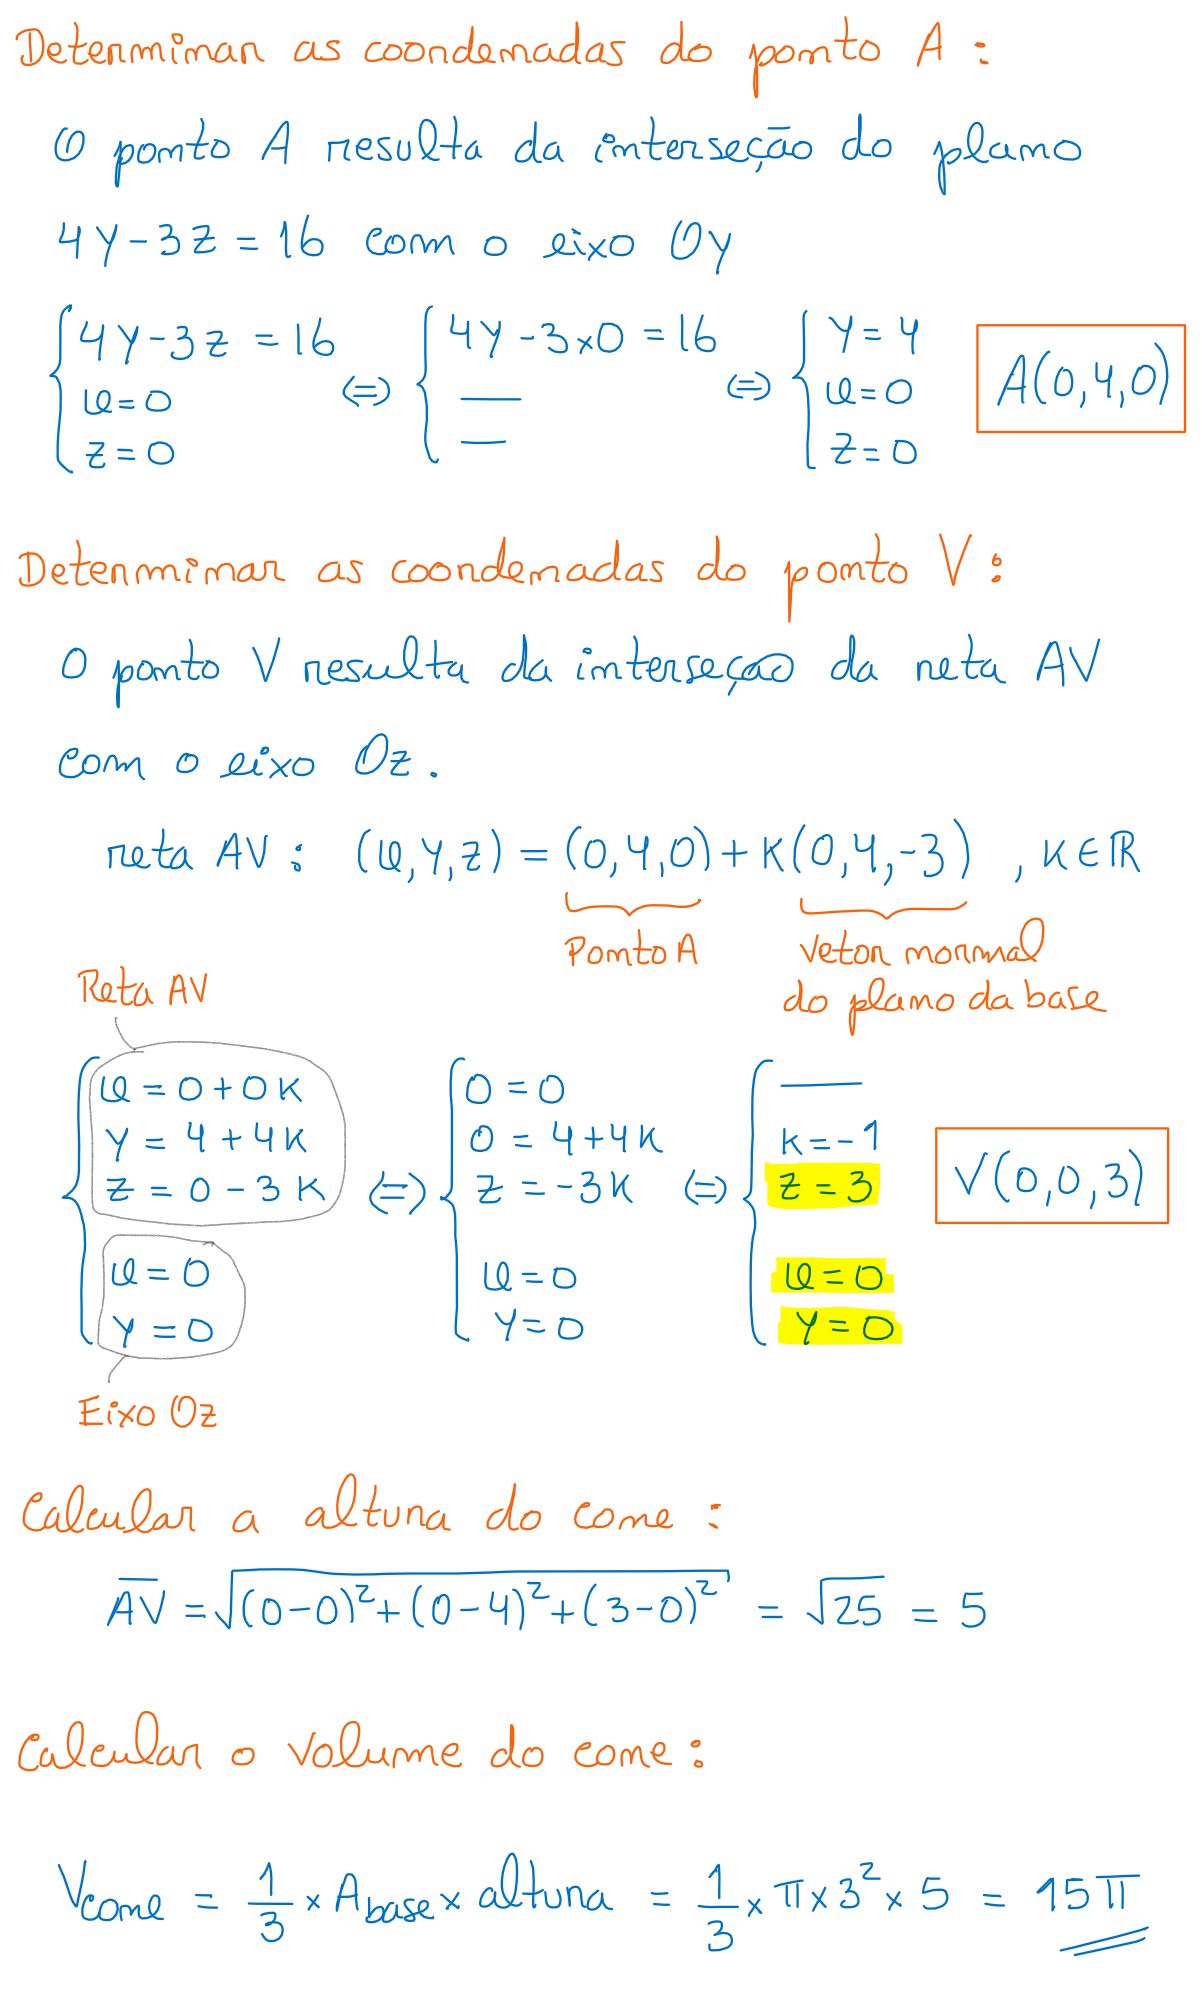 Determinar as coordenadas do ponto A :
O ponto A resulta da interseção do plano
4y-3z = 16 com o eixo Oy
{ 4y-3z = 16 ⇔ { 4y-3×0 = 16 ⇔ { y = 4
x=0 — x=0
z=0 — z=0
A(0,4,0)
Determinar as coordenadas do ponto V :
O ponto V resulta da interseção da reta AV
com o eixo Oz.
reta AV : (x,y,z) = (0,4,0)+K(0,4,-3) , K∈ℝ
Ponto A Vetor normal
do plano da base
Reta AV
{ x = 0+0K { 0=0 { —
y = 4+4K 0 = 4+4K K=-1
z = 0-3K ⇔ z = -3K ⇔ z = 3
x=0 x=0 x=0
y=0 y=0 y=0
V(0,0,3)
Eixo Oz
Calcular a altura do cone :
A̅V̅ = √((0-0)²+(0-4)²+(3-0)²) = √25 = 5
Calcular o volume do cone :
Vcone = 1/3 × Abase × altura = 1/3 × π×3²×5 = 15π